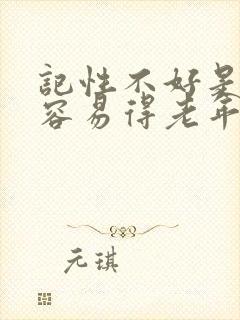 記性不好是
容易得老年
元琪